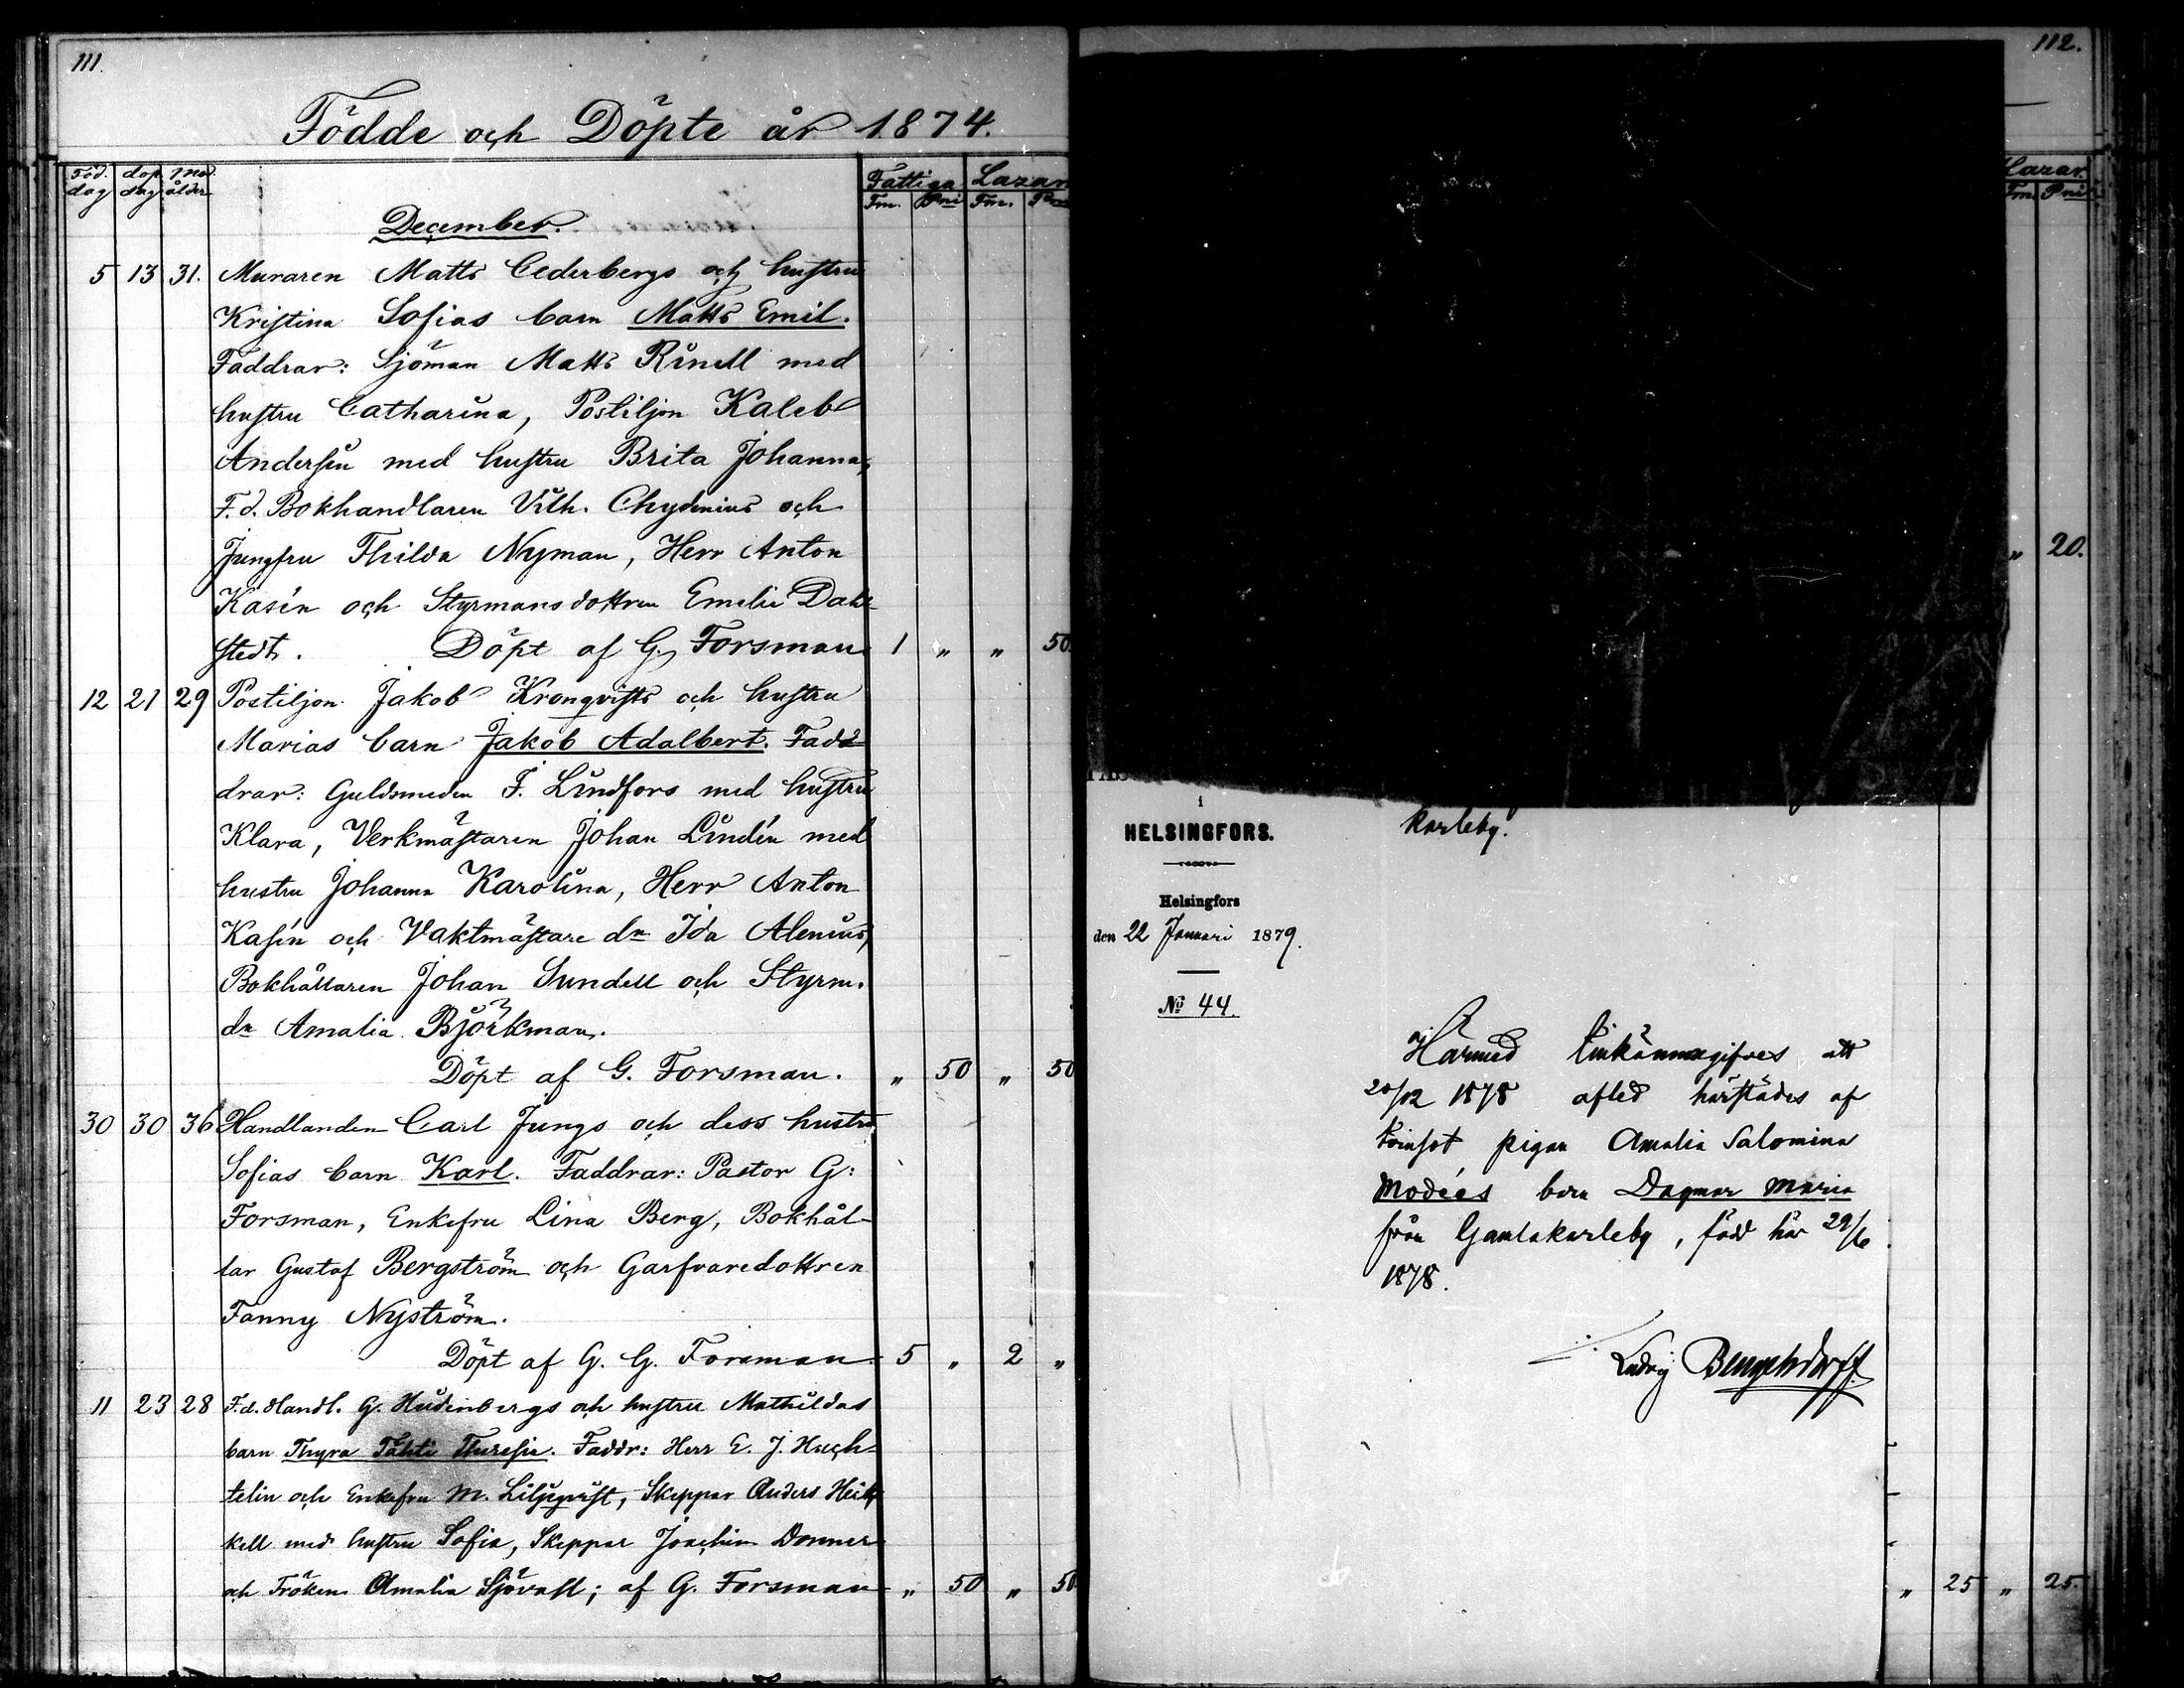 111.
Födde och Döpte år 1874.
Föd. dag döp. dag Mod. ålder Fattiga Fm. Pni Lazar. Fm. Pni
December.
5 13 31. Muraren Matts Cederbergs och hustru
Kristina Sofias barn Matts Emil.
Faddrar: Sjöman Matts Rinell med
hustru Catharina, Postiljon Kaleb
Andersén med hustru Brita Johanna,
F.d. Bokhandlaren Vilh. Chydenius och
Jungfru Thilda Nyman, Herr Anton
Kasén och Styrmansdottren Emelie Dahl-
stedt. Döpt af G. Forsman 1 " " 50.
12 21 29 Postiljon Jakob Kronqvists och hustru
Marias barn Jakob Adalbert. Fad-
drar: Guldsmeden F. Lindfors med hustru
Klara, Verkmästaren Johan Lindén med
hustru Johanna Karolina, Herr Anton
Kasén och Vaktmästare dn Ida Alenius,
Bokhållaren Johan Sundell och Styrm.
dn Amalia Björkman.
Döpt af G. Forsman. " 50 " 50
30 30 36 Handlanden Carl Jungs och dess hustru
Sofias barn Karl. Faddrar: Pastor G:
Forsman, Enkefru Lina Berg, Bokhål-
lar Gustaf Bergström och Garfvaredottren
Fanny Nyström.
Döpt af G. G. Forsman 5 " 2 "
11 23 28 F.d. Handl. G. Hidénbergs och hustru Mathildas
barn Thyra Tähti Theresia. Faddr: Herr E. J. Huch-
telin och Enkefru M. Liljeqvist, Skeppar Anders Heik-
kell med hustru Sofia, Skeppar Joachim Donner
och Fröken Amalia Sjövall; af G. Forsman " 50 " 50
112.
Lazar.
Fm. Pni
" 20.
i
HELSINGFORS.
Karleby.
Helsingfors
den 22 Januari 1879.
No 44.
Härmed tillkännagifves att
20/12 1878 afled härstädes af
pigan Amalia Salomina
Modées barn Dagmar Maria
från Gamlakarleby, född här 29/6
1878.
Ludvig Bengelsdorff.
" 25 " 25.